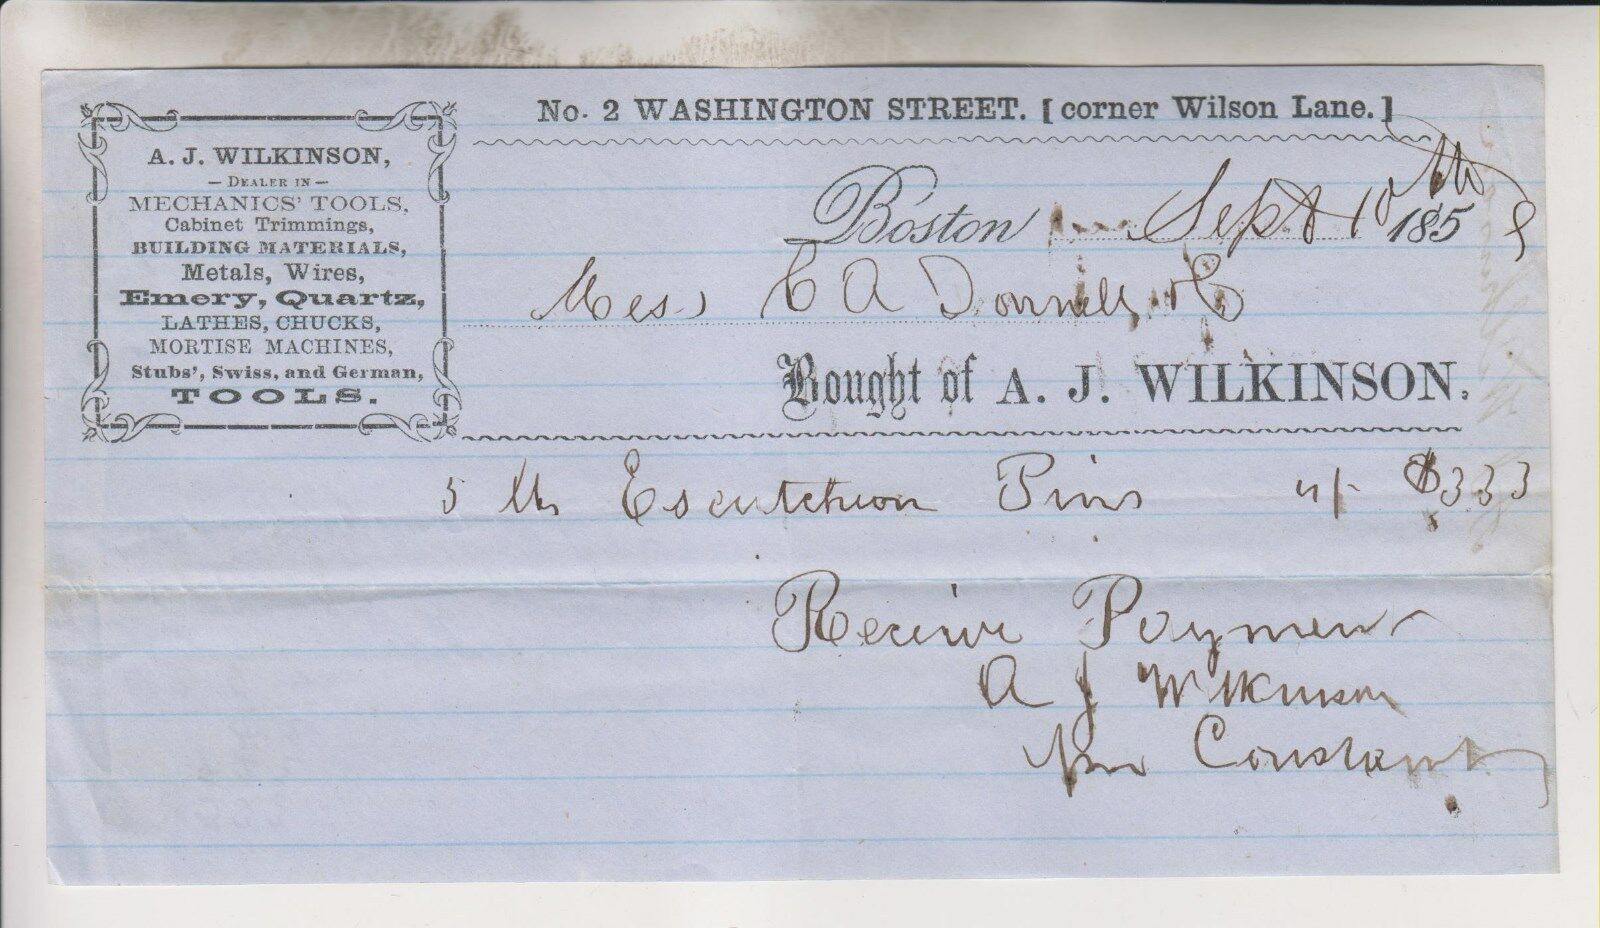 No. 2 WASHINGTON STREET. [corner Wilson Lane.]
A. J. WILKINSON,
— DEALER IN —
MECHANICS' TOOLS,
Cabinet Trimmings,
BUILDING MATERIALS,
Metals, Wires,
Emery, Quartz,
LATHES, CHUCKS,
MORTISE MACHINES,
Stubs', Swiss, and German,
TOOLS.
Boston Sept 10 185
Mess C A Donnell & Co
Bought of A. J. WILKINSON.
5 lbs Escutcheon Pins 4/- $3 33
Receive Payment
A J Wilkinson
Constant